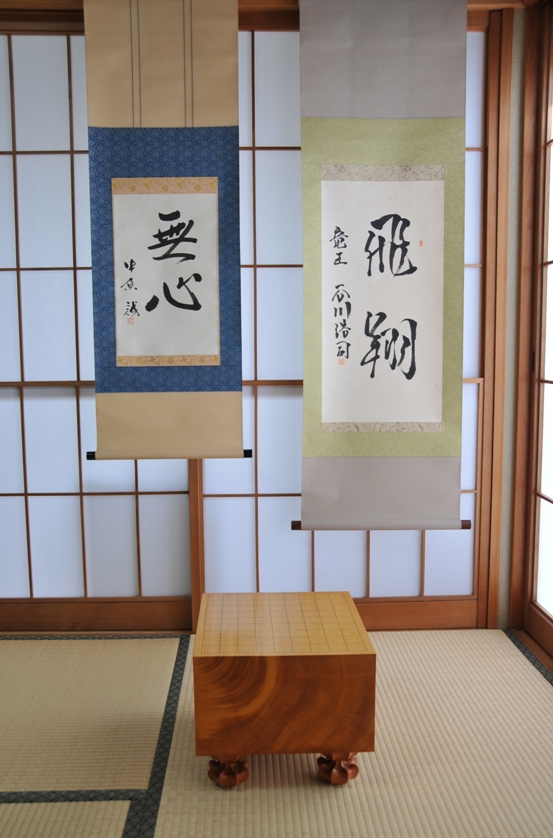 飛翔
竜王 谷川浩司
無心
中原 誠